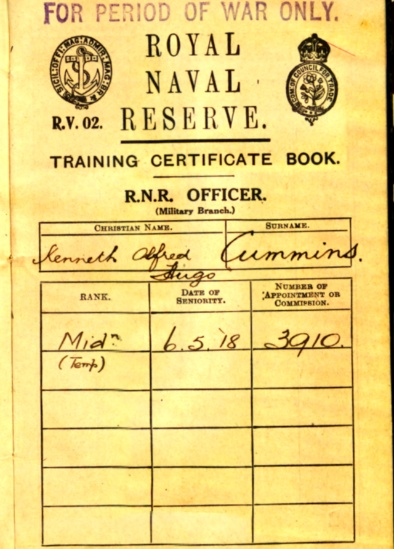 FOR PERIOD OF WAR ONLY.
ROYAL
NAVAL
R.V. 02. RESERVE.
TRAINING CERTIFICATE BOOK.
R.N.R. OFFICER.
(Military Branch.)
CHRISTIAN NAME. SURNAME.
Kenneth Alfred Cummins.
Hugo
RANK. DATE OF SENIORITY. NUMBER OF APPOINTMENT OR COMMISSION.
Midn 6.5.18 3910.
(Temp)